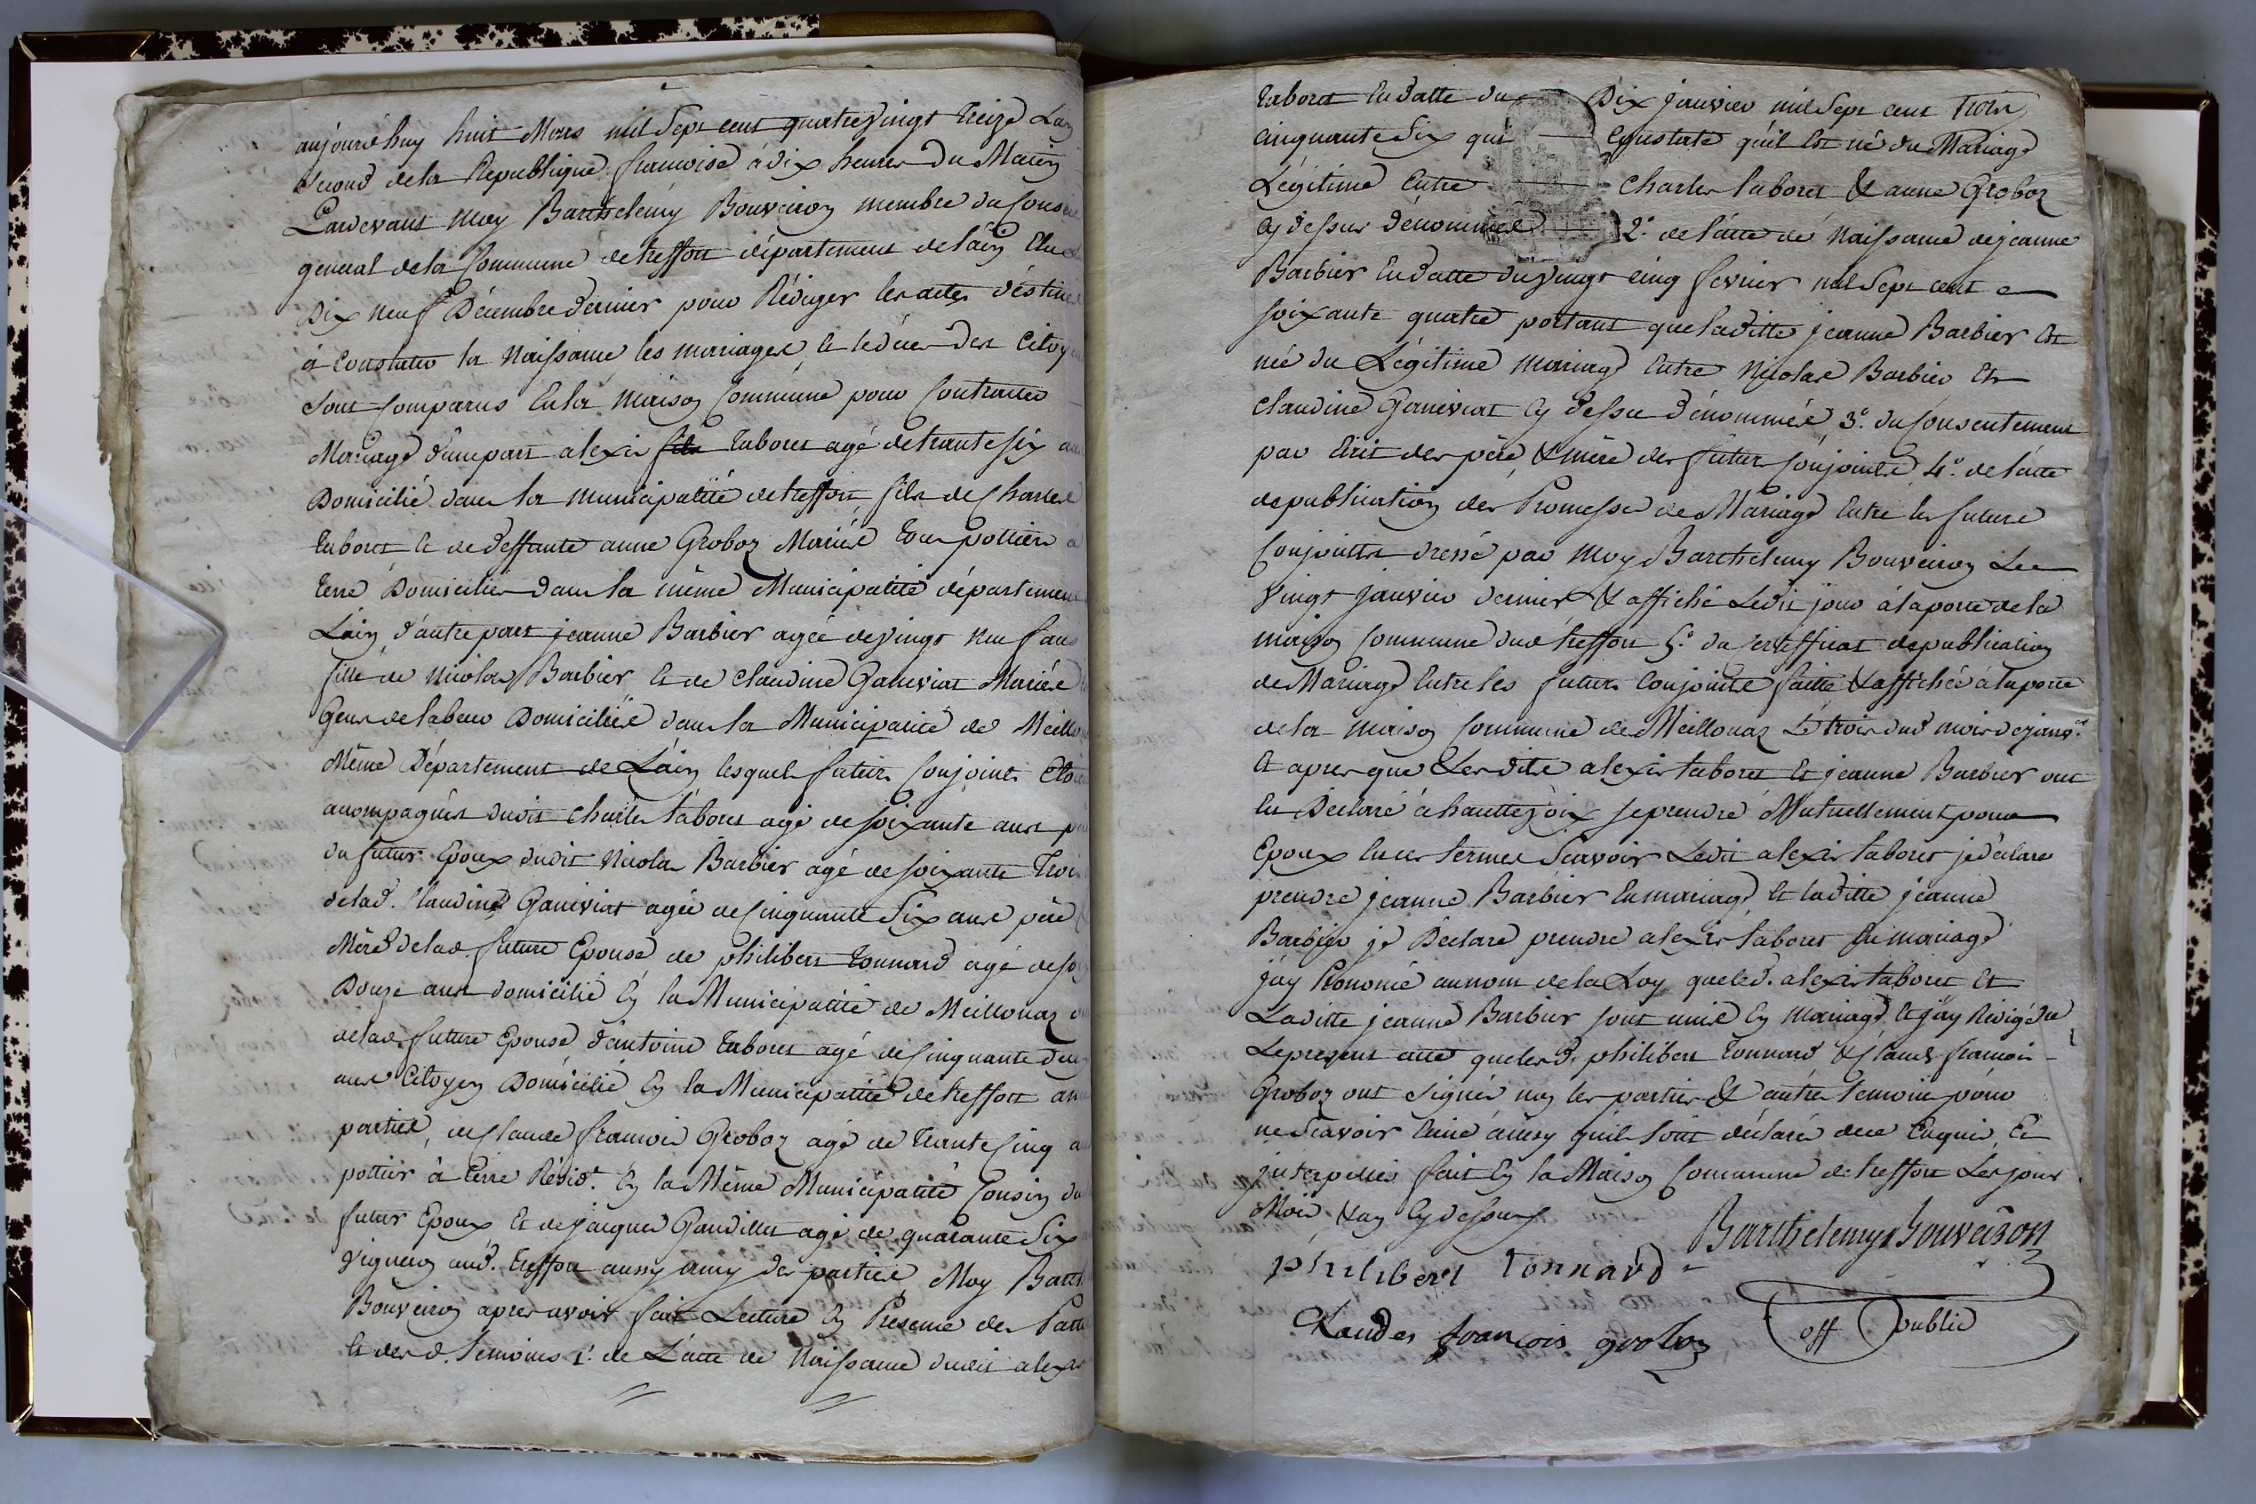 aujourd'huy huit Mars mil Sept cent quatrevingt treize Lan
Second de la Republique francoise à dix heures du Matin
Pardevant moy Barthelémy Bouveiron membre du Conseil
general de la Commune de treffort département de lain Elu
dix neuf Décembre dernier pour Rédiger les actes déstinés
à Constater la Naissance, les mariages, et le décés des Citoy
Sont Comparus En la Maison Commune pour Contracter
Mariage d'une part alexis fils taboret agé de trante six ans
Domicilié dans la municipalité de treffort fils de Charles
taboret et de deffunte anne Groboz Mariés tous pottiers à
terre Domiciliés dans la même Municipalité département
Lain d'autre part jeanne Barbier agée de vingt neuf ans
fille de Nicolas Barbier et de Claudine Ganeviat Mariés
Gens de labeur Domiciliés dans la Municipalité de Meillo
Même Département de Lain lesquels futurs Conjoints Eto
acompagnés dudit Charles taboret agé de soixante ans p
du futur Epoux dudit Nicolas Barbier agé de soixante trois
de lad. Claudine Ganeviat agée de Cinquante Six ans père
Mère de lad. future Epouse de philibert tonnard agé de so
Douze ans domicilié En la Municipalité de Meillonaz
de lad. future Epouse d'antoine taboret agé de Cinquante deu
ans Citoyen Domicilié En la Municipalité de treffort am
parties, de Claude francois Groboz agé de trante Cinq a
pottier à terre Résid.t En la Même Municipalité Cousin du
futur Epoux Et de jacques Gaudillet agé de quarante Six
vigneron aud. treffort aussy amy des parties, Moy Barth
Bouveiron apres avoir fait Lecture En Présence des Parti
Et des d. temoins 1.° de L'acte de Naissance dudit alexis
taboret En datte du dix janvier mil Sept cent trois
cinquante Six qui Constate qu'il Est né du Mariage
Légitime Entre Charles taboret & anne Groboz
Cy dessus dénommés 2.° de l'acte de Naissance de jeanne
Barbier En datte du vingt cinq fevrier mil Sept cent
soixante quatre portant que laditte jeanne Barbier Est
née du Légitime Mariage Entre Nicolas Barbier Et
Claudine Ganeviat Cy dessus dénommés 3.° du Consentement
par Ecrit des père & mère des futurs Conjoints 4.° de l'acte
de publication des Promesses de Mariage Entre les futurs
Conjoints dressé par moy Barthelemy Bouveiron Le
vingt janvier dernier & affiché Ledit jour à la porte de la
maison Commune dud treffort 5.° du Certifficat de publication
de Mariage Entre les futurs Conjoints faitte & affichée à la porte
de la maison Commune de Meillonaz Le trois dud mois de janv.er
Et apres que Lesdits alexis taboret et jeanne Barbier ont
Eu Déclaré à hautte voix se prendre Mutuellement pour
Epoux En ces termes Scavoir Ledit alexis taboret je déclare
prendre jeanne Barbier En mariage Et laditte jeanne
Barbier je Déclare prendre alexis taboret En mariage
j'ay Prononcé au nom de la Loy que led. alexis taboret Et
Laditte jeanne Barbier sont unis En Mariage, Et j'ay Rédigé
Le present acte que lesd. philibert tonnard & Claude francois
Groboz ont signés non les parties & autres temoins pour
ne Scavoir Ecrire ainsy qu'ils l'ont déclaré de ce Enquis Et
interpellés fait En la Maison Commune de treffort Les jour
Mois & an Cy dessus
Barthelemy Bouveiron
philibert tonnard
off public
Claudes francois groboz